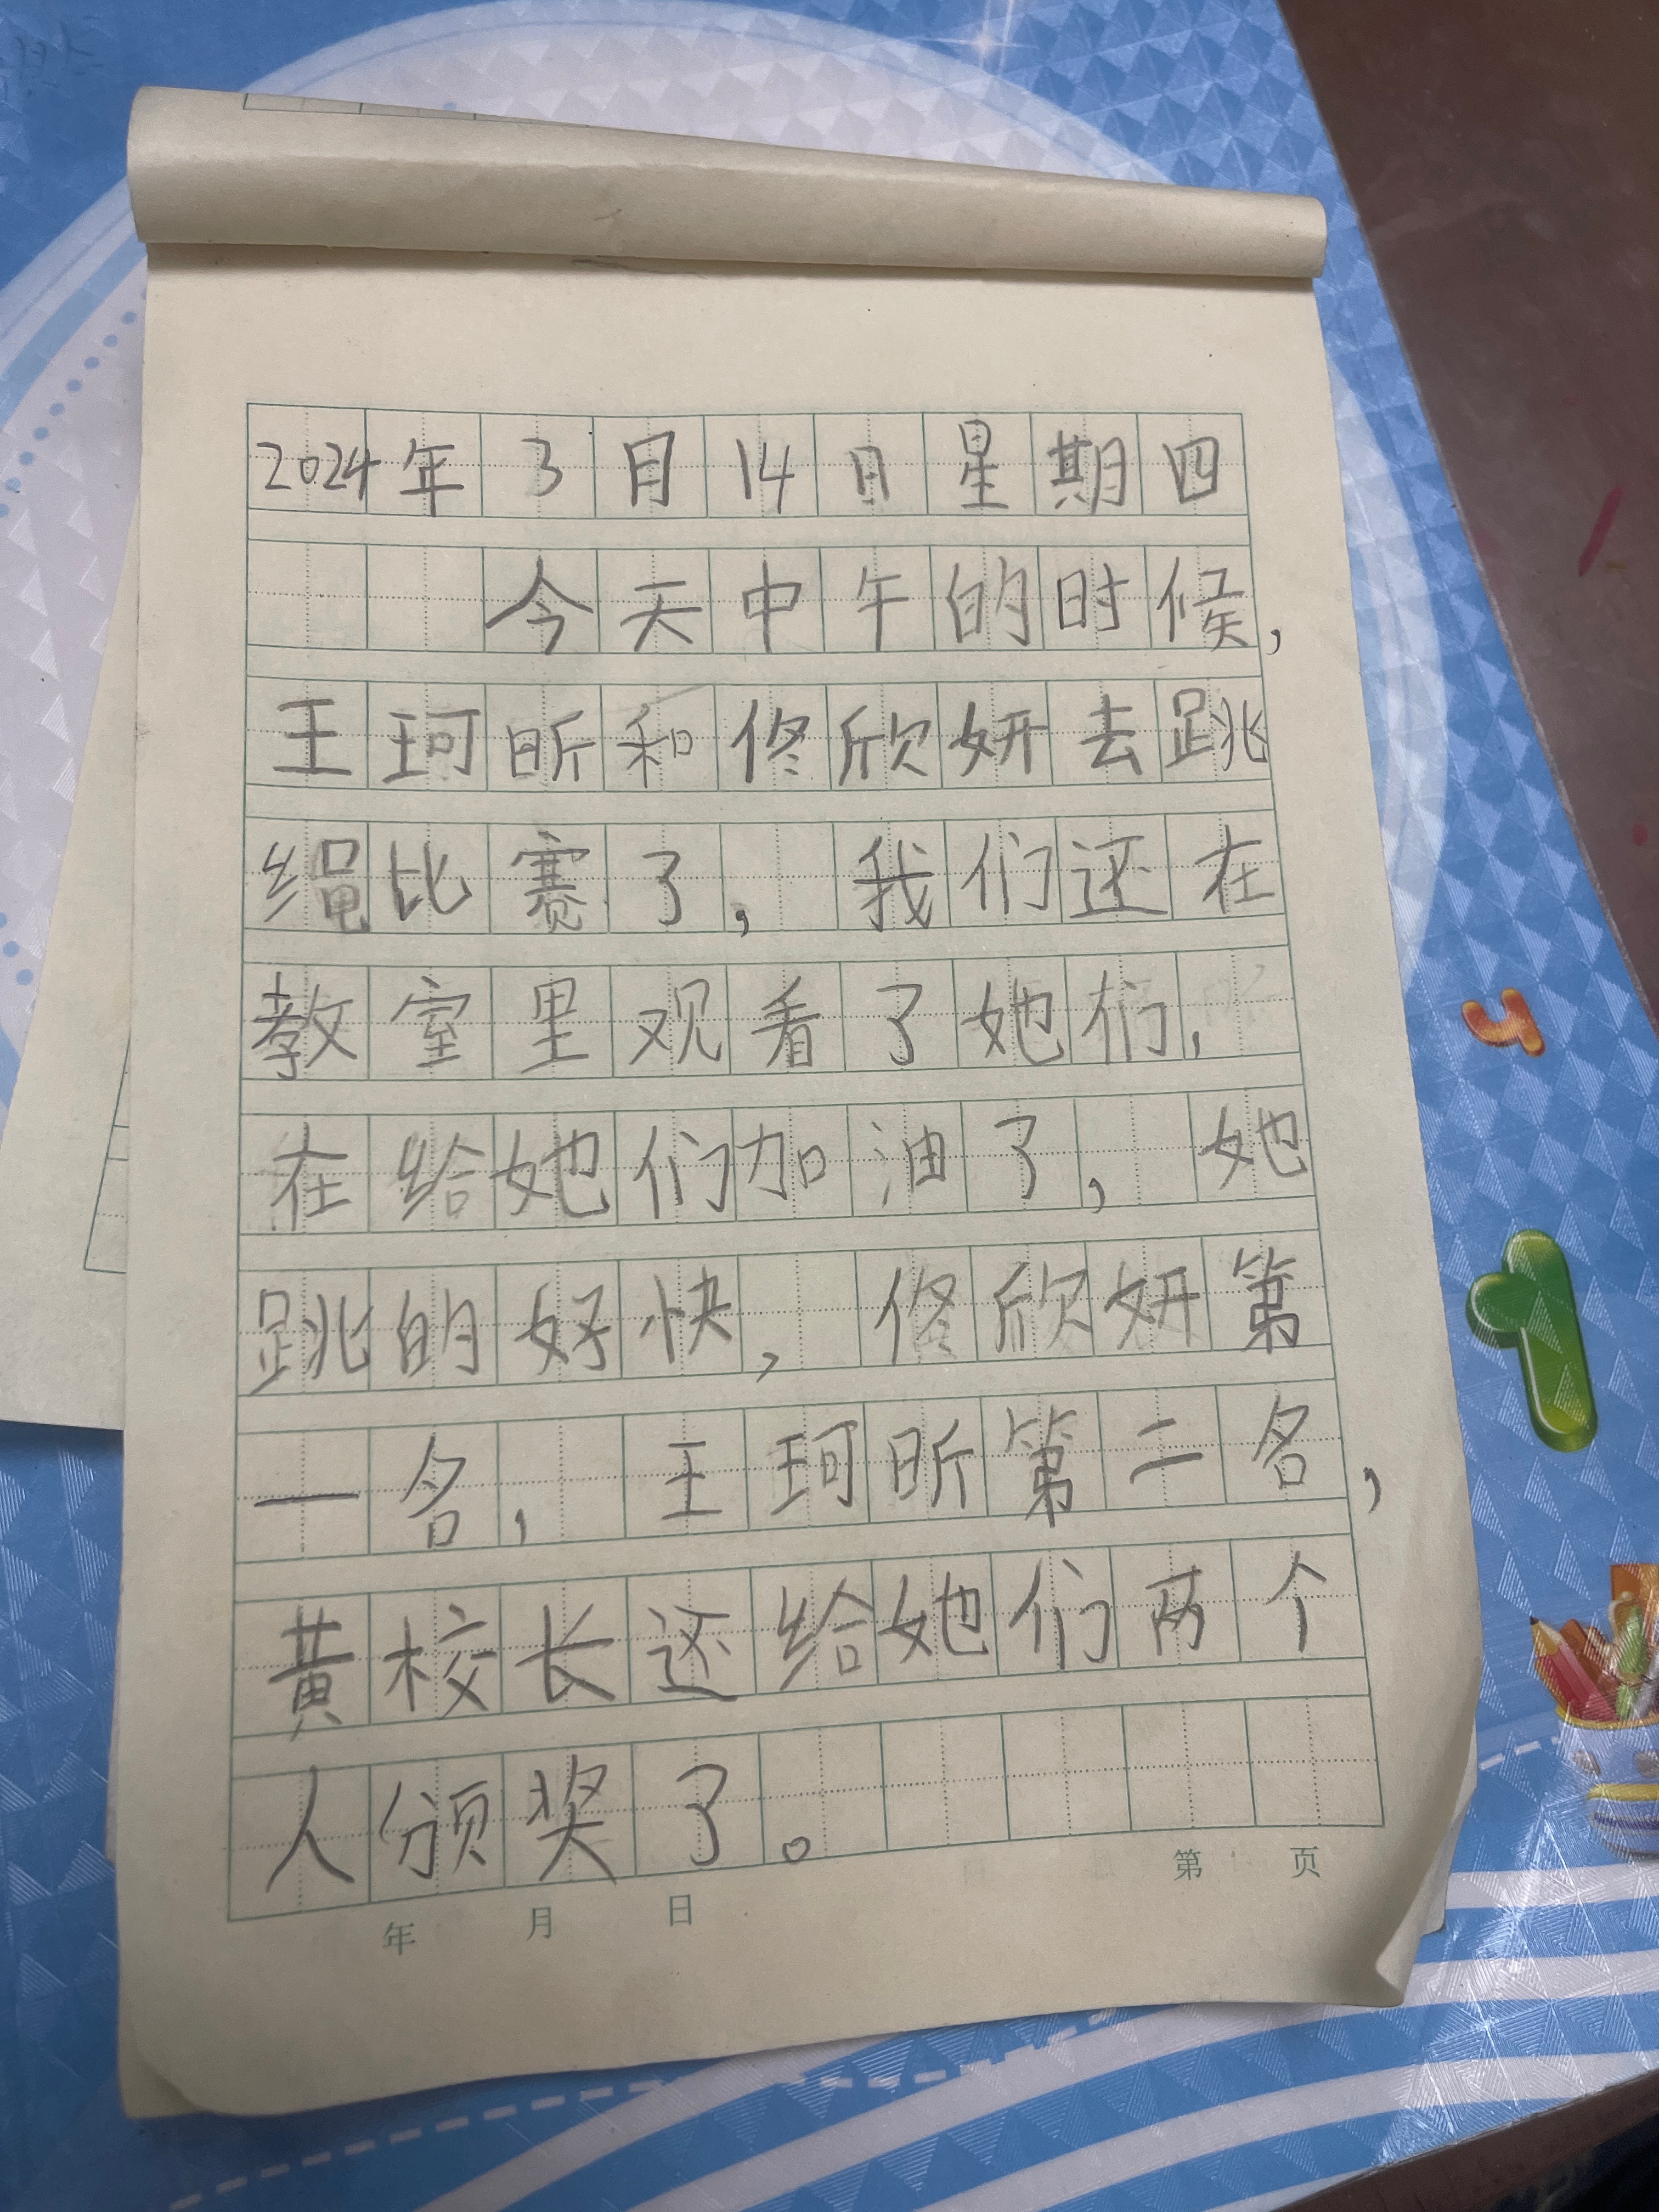 2024年3月14日星期四
今天中午的时候,
王珂昕和佟欣妍去跳
绳比赛了,我们还在
教室里观看了她们,
在给她们加油了,她
跳的好快,佟欣妍第
一名,王珂昕第二名,
黄校长还给她们两个
人颁奖了。
第 页
年 月 日